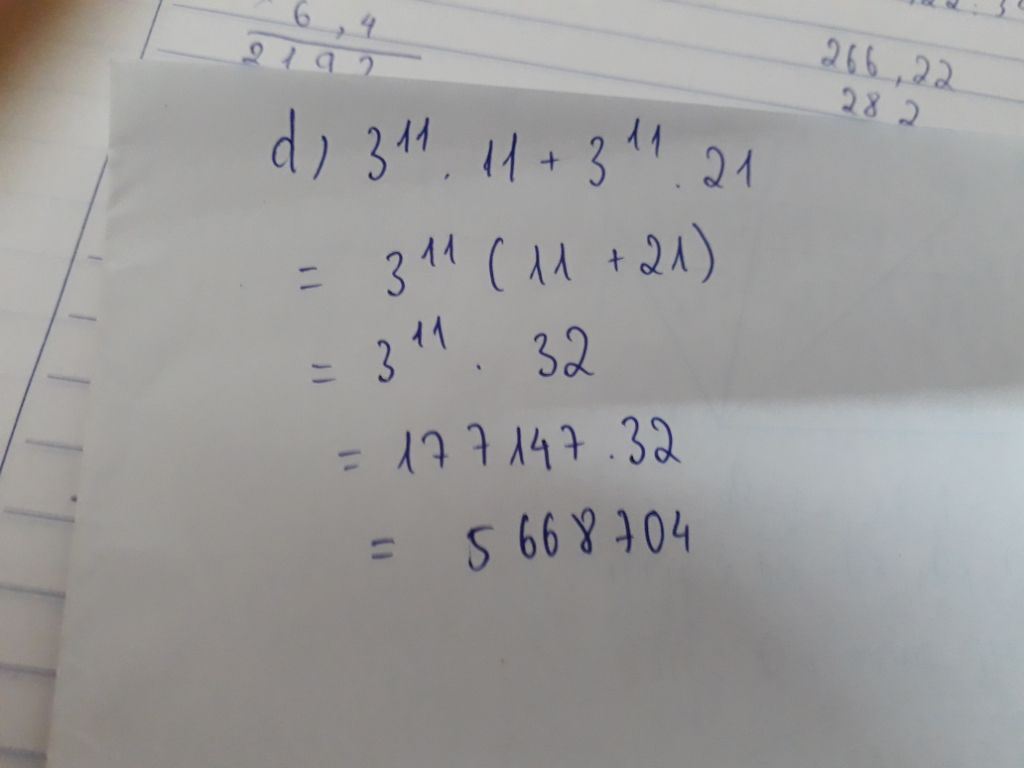 6,4
2192
266,22
282
d) 3¹¹ . 11 + 3¹¹ . 21
= 3¹¹ (11 + 21)
= 3¹¹ . 32
= 177147 . 32
= 5668704